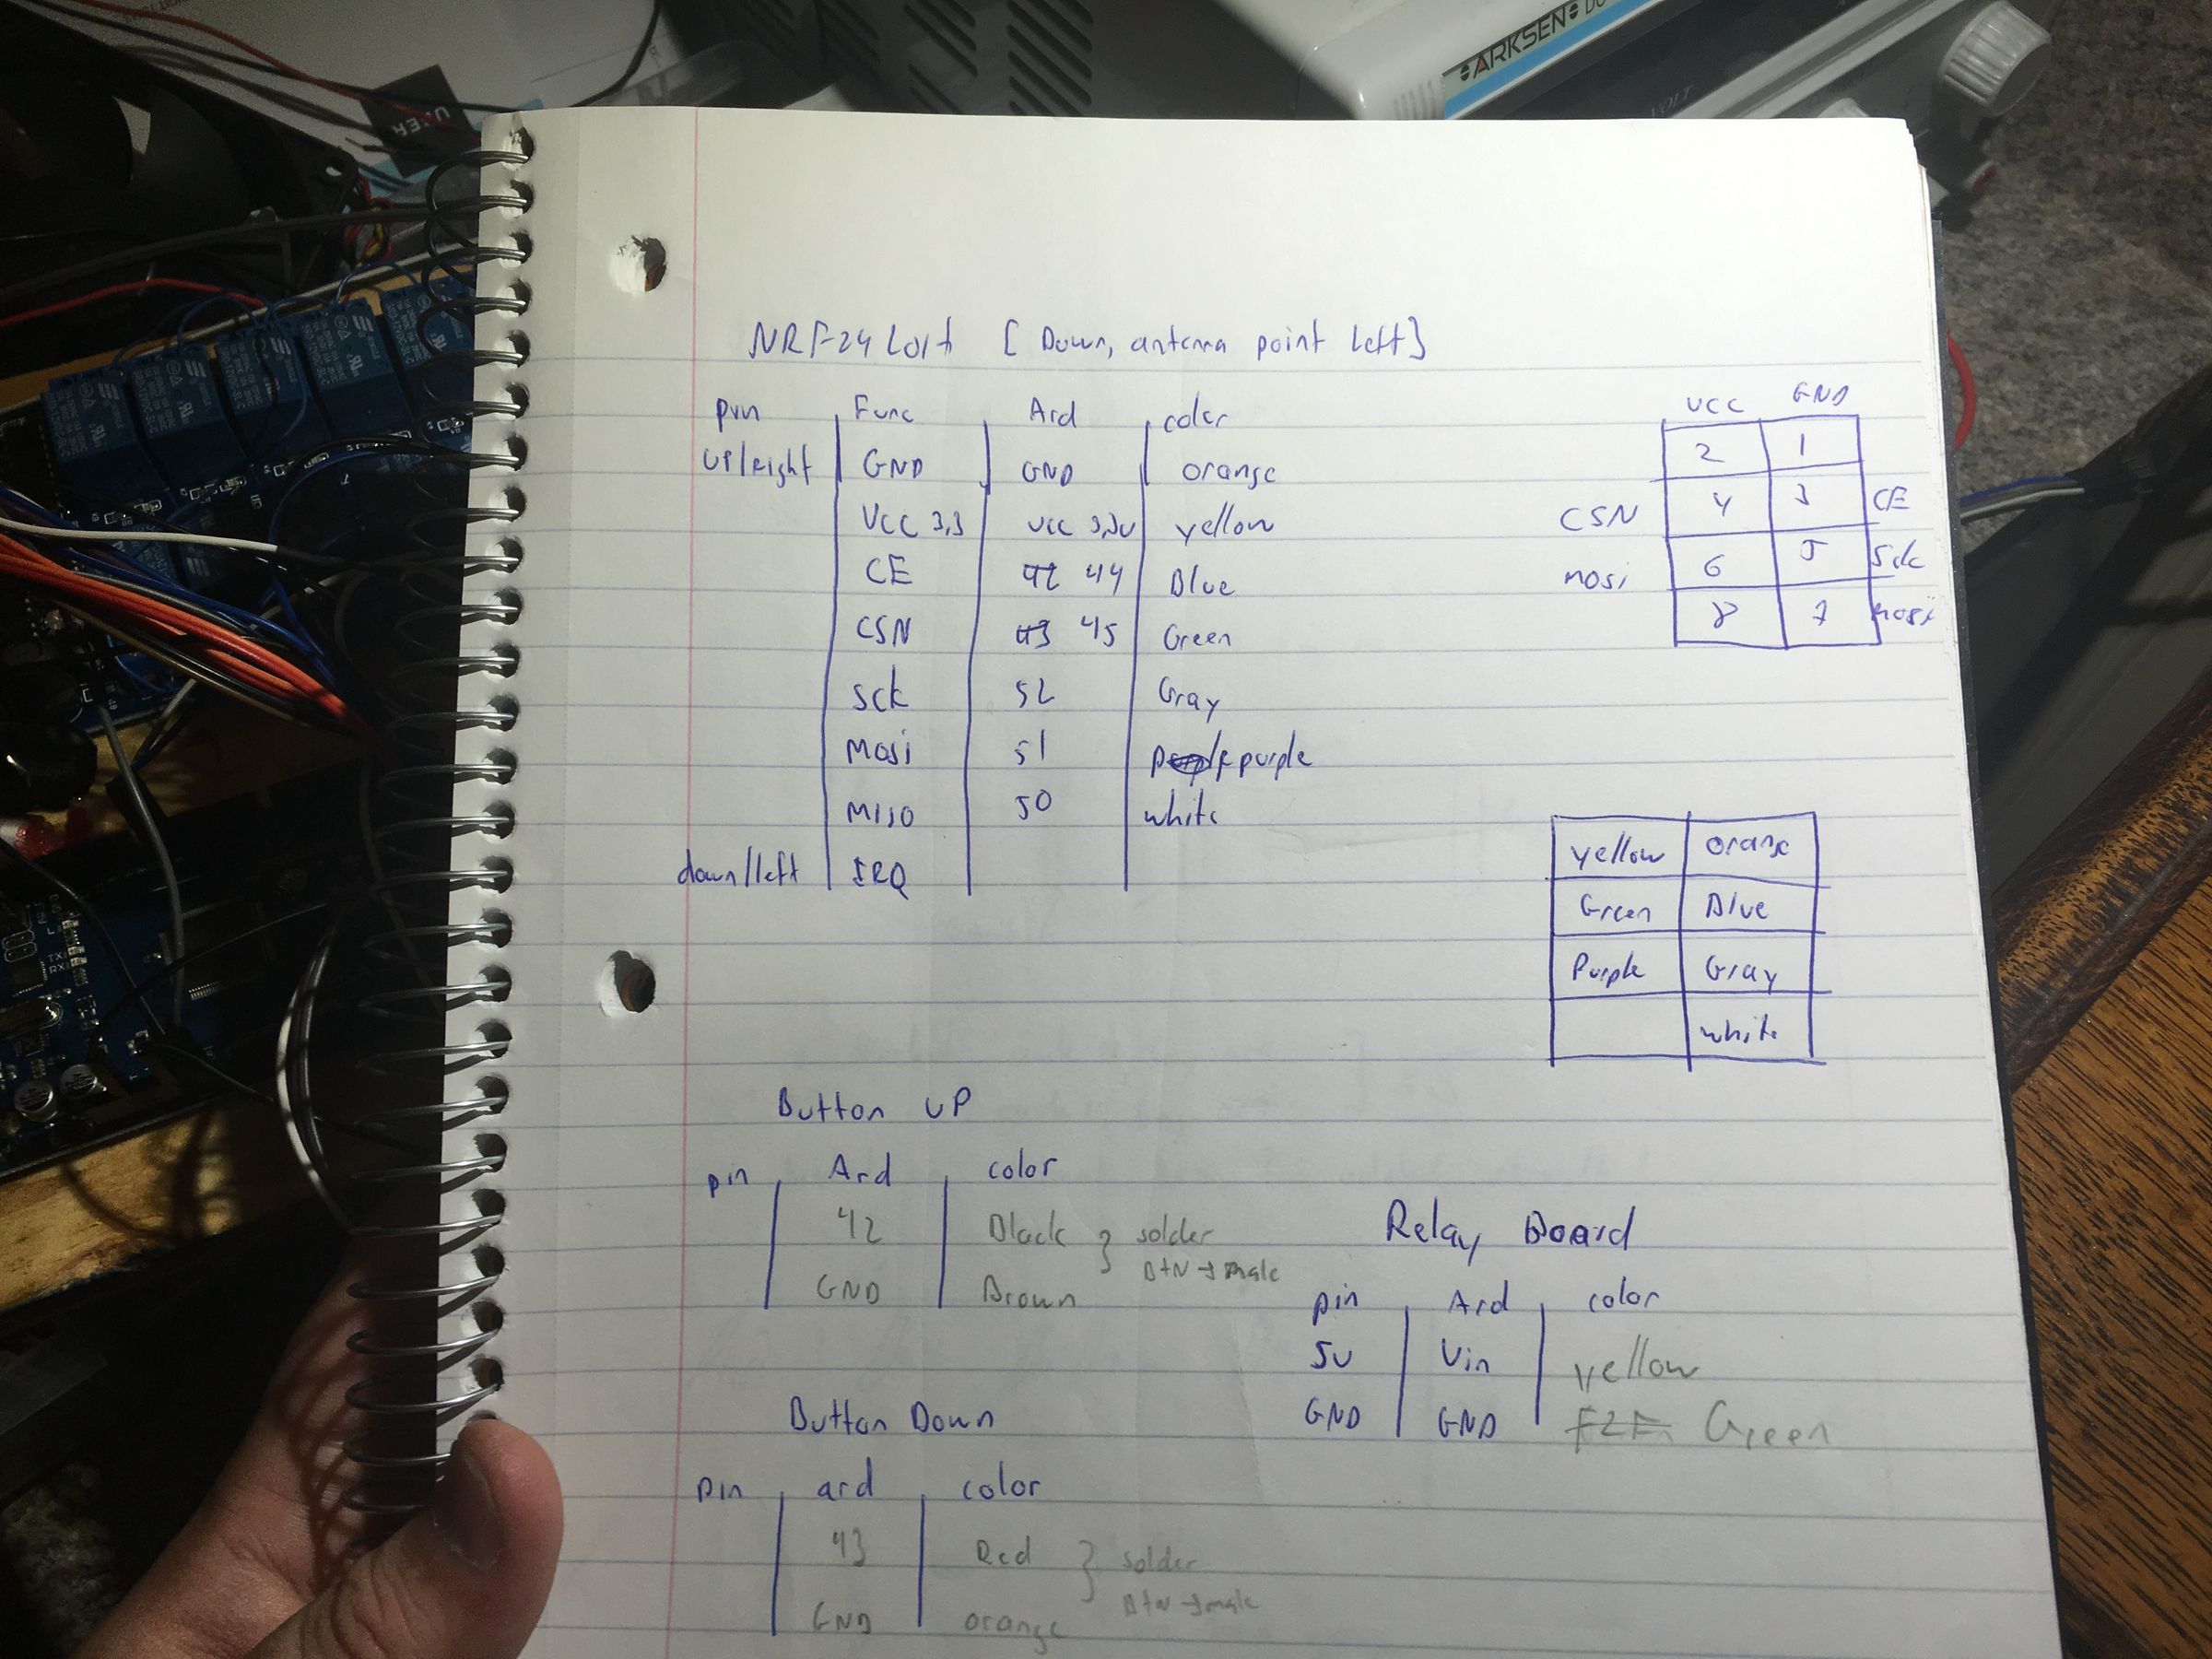 ARKSEN
VOLT
NRF24L01+ [Down, antenna point Left]
pin Func Ard color
UP/right GND GND orange
VCC 3,3 VCC 3,3v yellow
CE 42 44 Blue
CSN 43 45 Green
sck 52 Gray
mosi 51 purple
MISO 50 white
down/left IRQ
VCC GND
2 1
CSN 4 3 CE
mosi 6 5 Sck
8 7 mosi
yellow orange
Green Blue
Purple Gray
white
Button UP
pin Ard color
42 Black } solder
GND Brown BtN → male
Relay Board
pin Ard color
5v Vin yellow
GND GND F2F Green
Button Down
pin ard color
43 Red } solder
GND orange Btn → male
TX
RX